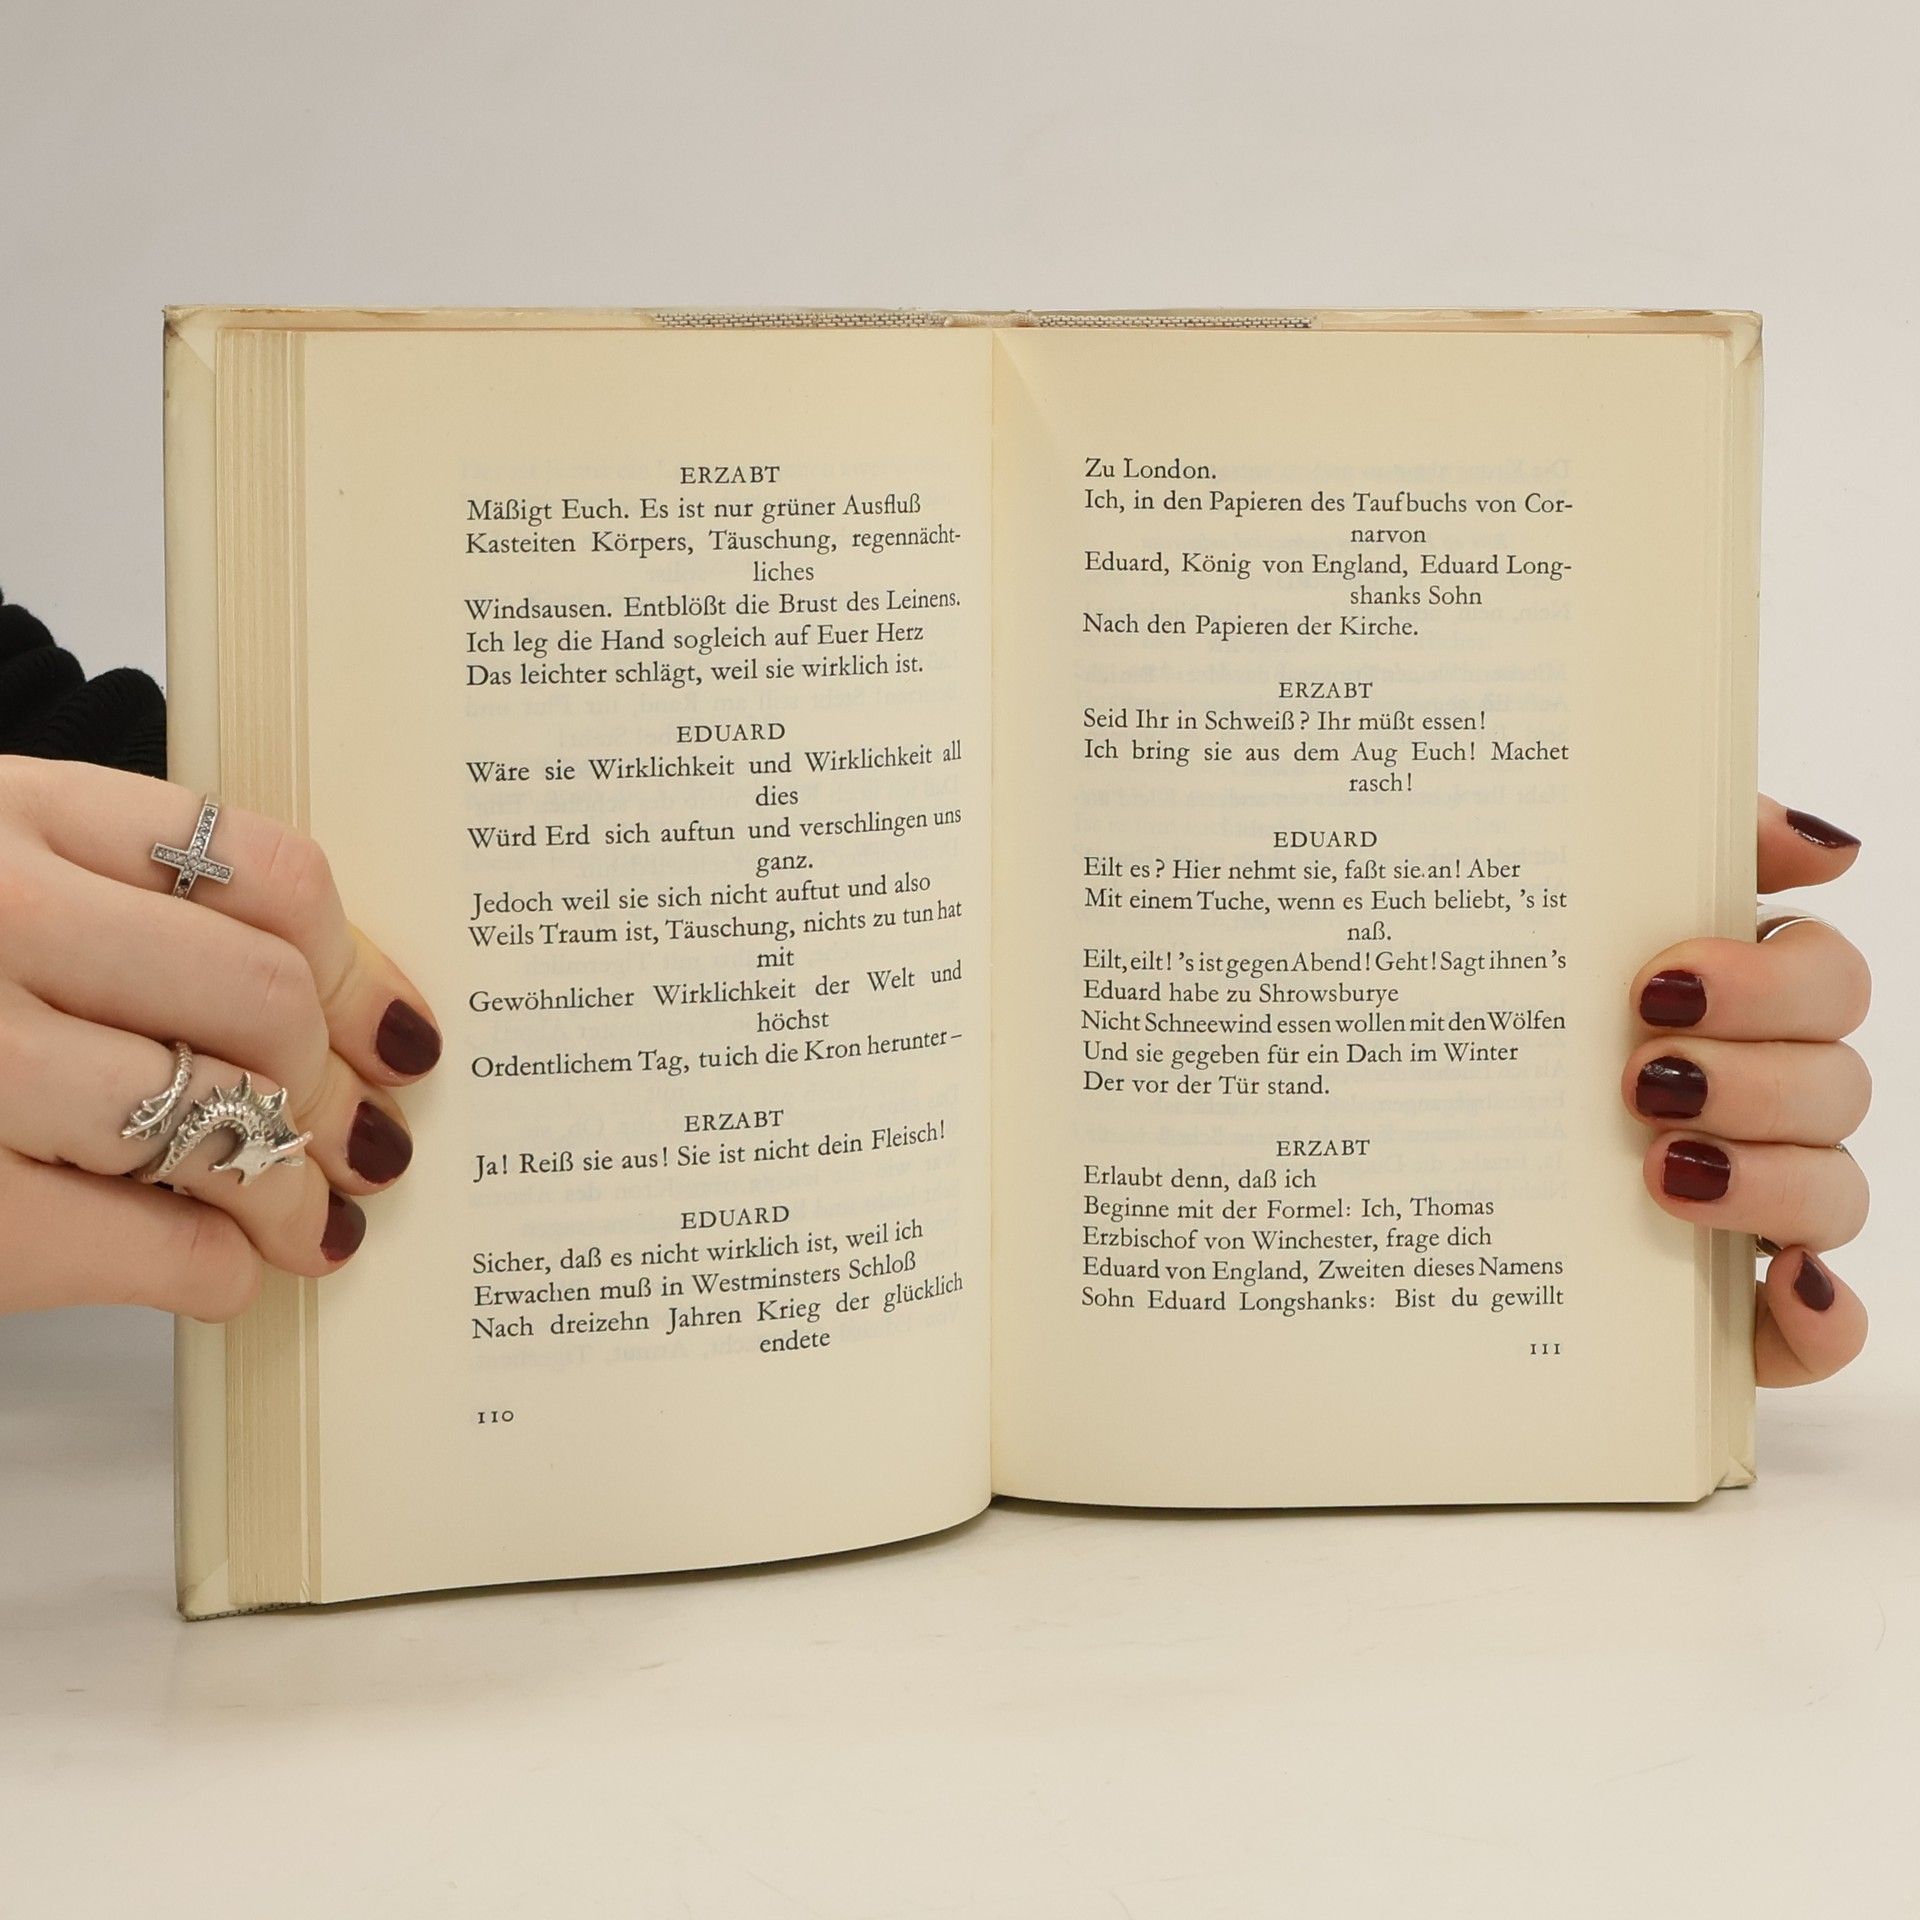 ERZABT
Mäßigt Euch. Es ist nur grüner Ausfluß
Kasteiten Körpers, Täuschung, regennächt-
liches
Windsausen. Entblößt die Brust des Leinens.
Ich leg die Hand sogleich auf Euer Herz
Das leichter schlägt, weil sie wirklich ist.
EDUARD
Wäre sie Wirklichkeit und Wirklichkeit all
dies
Würd Erd sich auftun und verschlingen uns
ganz.
Jedoch weil sie sich nicht auftut und also
Weils Traum ist, Täuschung, nichts zu tun hat
mit
Gewöhnlicher Wirklichkeit der Welt und
höchst
Ordentlichem Tag, tu ich die Kron herunter–
ERZABT
Ja! Reiß sie aus! Sie ist nicht dein Fleisch!
EDUARD
Sicher, daß es nicht wirklich ist, weil ich
Erwachen muß in Westminsters Schloß
Nach dreizehn Jahren Krieg der glücklich
endete
110
Zu London.
Ich, in den Papieren des Taufbuchs von Cor-
narvon
Eduard, König von England, Eduard Long-
shanks Sohn
Nach den Papieren der Kirche.
ERZABT
Seid Ihr in Schweiß? Ihr müßt essen!
Ich bring sie aus dem Aug Euch! Machet
rasch!
EDUARD
Eilt es? Hier nehmt sie, faßt sie an! Aber
Mit einem Tuche, wenn es Euch beliebt, 's ist
naß.
Eilt, eilt! 's ist gegen Abend! Geht! Sagt ihnen 's
Eduard habe zu Shrowsburye
Nicht Schneewind essen wollen mit den Wölfen
Und sie gegeben für ein Dach im Winter
Der vor der Tür stand.
ERZABT
Erlaubt denn, daß ich
Beginne mit der Formel: Ich, Thomas
Erzbischof von Winchester, frage dich
Eduard von England, Zweiten dieses Namens
Sohn Eduard Longshanks: Bist du gewillt
111